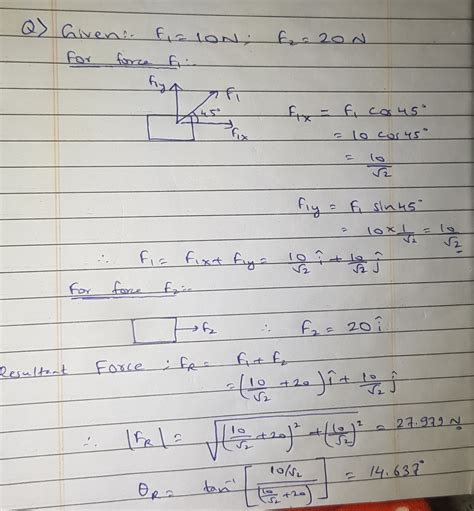 Q) Given:- F₁ = 10N; F₂ = 20N
For force F₁:-
F₁y
F₁
45°
F₁x
F₁x = F₁ cos 45°
= 10 cos 45°
= 10/√2
F₁y = F₁ sin 45°
= 10 × 1/√2 = 10/√2
∴ F₁ = F₁x + F₁y = 10/√2 î + 10/√2 ĵ
For force F₂:-
→ F₂ ∴ F₂ = 20 î
Resultant Force ; F_R = F₁ + F₂
= (10/√2 + 20) î + 10/√2 ĵ
∴ |F_R| = √((10/√2 + 20)² + (10/√2)²) = 27.979 N
θ_R = tan⁻¹ [ 10/√2 / (10/√2 + 20) ] = 14.637°